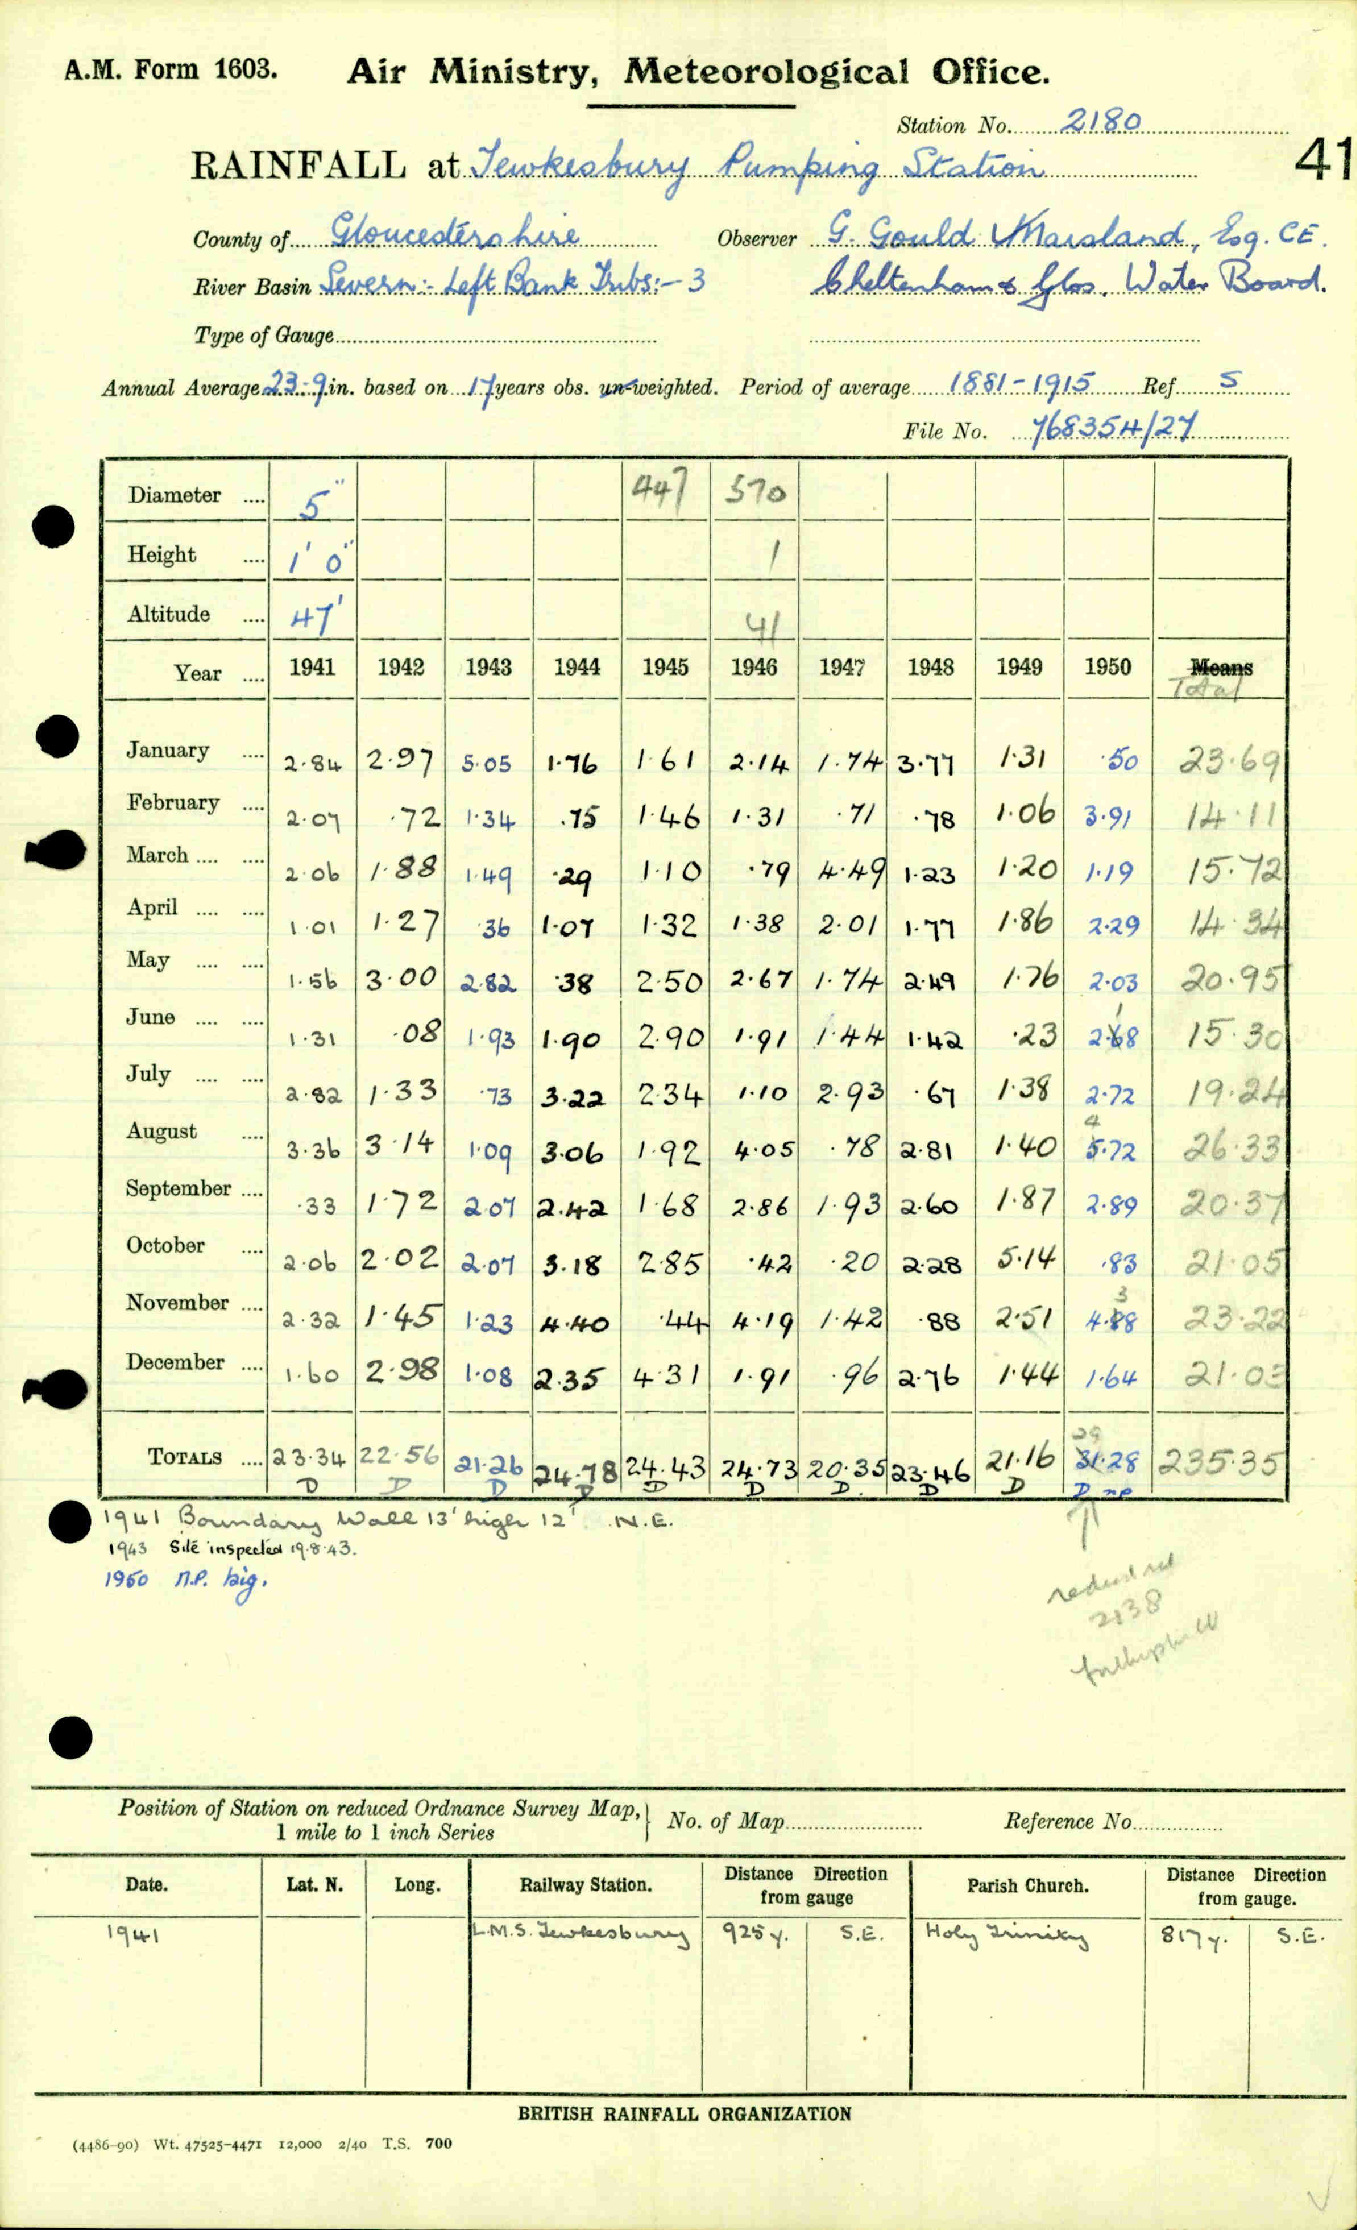 A.M. Form 1603. Air Ministry, Meteorological Office.
Station No. 2180
41
RAINFALL at Tewkesbury Pumping Station
County of Gloucestershire Observer G. Gould Marsland, Esq. C.E.
River Basin Severn:- Left Bank Tribs:- 3 Cheltenham & Glos. Water Board.
Type of Gauge
Annual Average 23.9 in. based on 17 years obs. un-weighted. Period of average 1881-1915 Ref S
File No. 768354/27
Diameter .... 5" 447 570
Height .... 1' 0" 1
Altitude .... 47' 41
Year .... 1941 1942 1943 1944 1945 1946 1947 1948 1949 1950 Means Total
January .... 2.84 2.97 5.05 1.76 1.61 2.14 1.74 3.77 1.31 .50 23.69
February .... 2.07 .72 1.34 .75 1.46 1.31 .71 .78 1.06 3.91 14.11
March .... .... 2.06 1.88 1.49 .29 1.10 .79 4.49 1.23 1.20 1.19 15.72
April .... .... 1.01 1.27 .36 1.07 1.32 1.38 2.01 1.77 1.86 2.29 14.34
May .... .... 1.56 3.00 2.82 .38 2.50 2.67 1.74 2.49 1.76 2.03 20.95
June .... .... 1.31 .08 1.93 1.90 2.90 1.91 1.44 1.42 .23 2.68 1 15.30
July .... .... 2.82 1.33 .73 3.22 2.34 1.10 2.93 .67 1.38 2.72 19.24
August .... 3.36 3.14 1.09 3.06 1.92 4.05 .78 2.81 1.40 5.72 4 26.33
September .... .33 1.72 2.07 2.42 1.68 2.86 1.93 2.60 1.87 2.89 20.37
October .... 2.06 2.02 2.07 3.18 2.85 .42 .20 2.28 5.14 .83 21.05
November .... 2.32 1.45 1.23 4.40 .44 4.19 1.42 .88 2.51 4.88 3 23.22
December .... 1.60 2.98 1.08 2.35 4.31 1.91 .96 2.76 1.44 1.64 21.03
TOTALS .... 23.34 22.56 21.26 24.78 24.43 24.73 20.35 23.46 21.16 31.28 29 235.35
D D D D D D D D D D np
1941 Boundary Wall 13' high 12' N.E.
1943 Site inspected 19.8.43.
1950 n.p. big.
2138
Position of Station on reduced Ordnance Survey Map, 1 mile to 1 inch Series No. of Map Reference No.
Date. Lat. N. Long. Railway Station. Distance from gauge Direction Parish Church. Distance from gauge. Direction
1941 L.M.S. Tewkesbury 925 y. S.E. Holy Trinity 817 y. S.E.
BRITISH RAINFALL ORGANIZATION
(4486-90) Wt. 47525-4471 12,000 2/40 T.S. 700